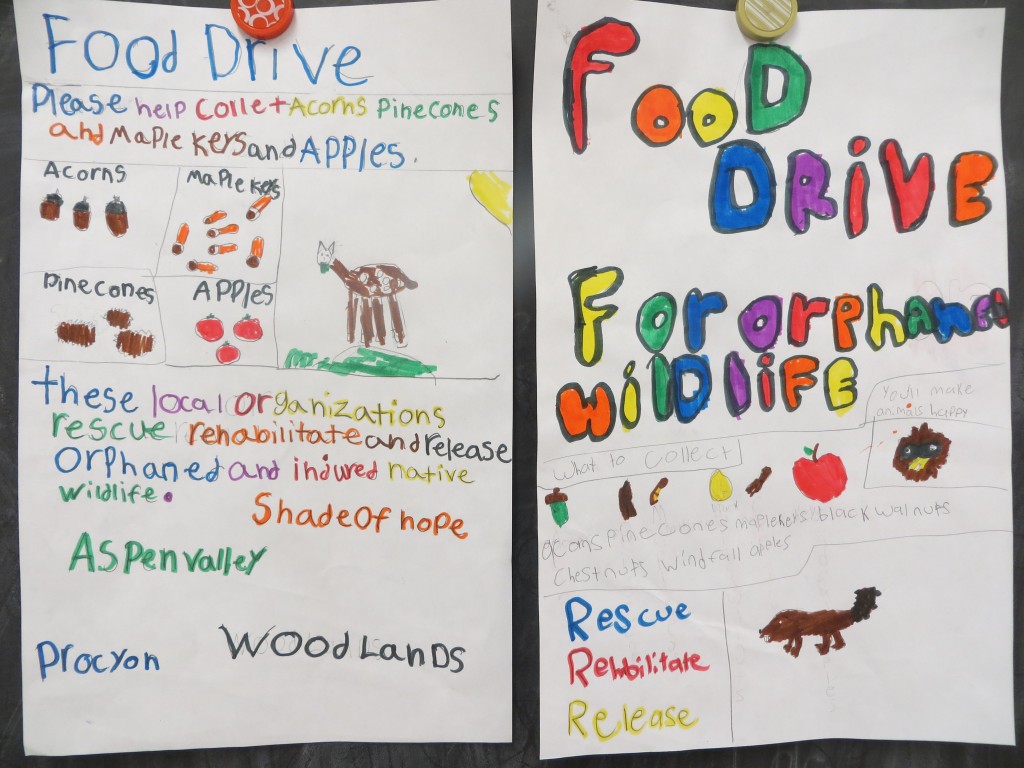 Food Drive
Please help Collet Acorns Pinecones
and Maple keys and APPles.
Acorns
Maple keys
Pinecones
APPles
these local organizations
rescue rehabilitate and release
Orphaned and indured native
wildlife.
Shade Of hope
Aspen valley
WOOdLanDS
Procyon
FooD
DRiVE
For orphaned
WilDliFE
You'll make
animals happy
What to collect
acorns pine cones maple keys black walnuts
Chestnuts windfall apples
Rescue
Rehbilitate
Release